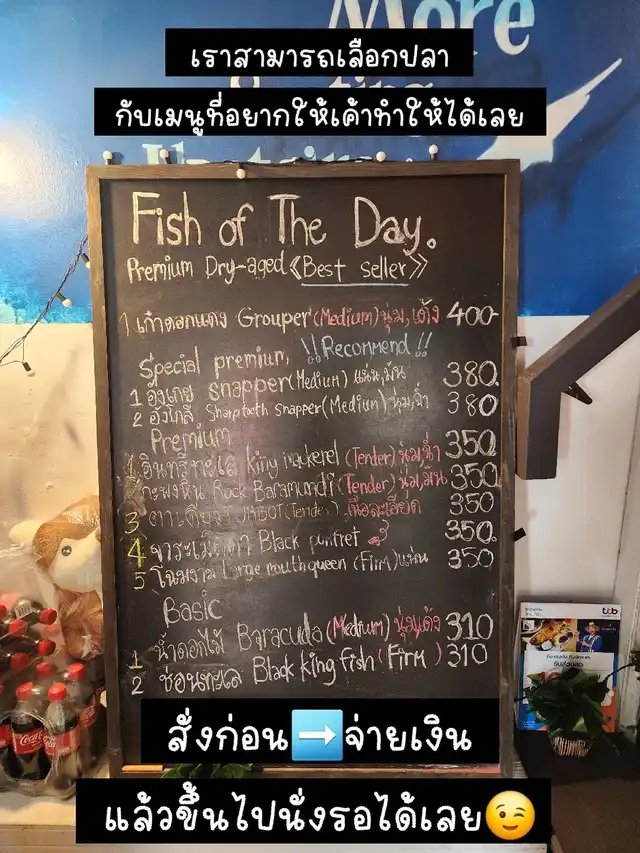 More
เราสามารถเลือกปลา
กับเมนูที่อยากให้เค้าทำให้ได้เลย
Fish of The Day.
Premium Dry-aged《Best seller》
1 เก๋าดอกแดง Grouper (Medium) นุ่ม,เด้ง 400
Special premium, !!Recommend!!
1 อังเกย snapper (Medium) แน่น,มัน 380.
2 อังโกลี Sharptooth snapper (Medium) นุ่ม,ฉ่ำ 380
Premium
1 อินทรีทะเล King mackerel (Tender) นุ่ม,ฉ่ำ 350
กะพงหิน Rock Baramundi (Tender) นุ่ม,มัน 350
3 ตาเดียว (Tender) เนื้อละเอียด 350
4 จาระเม็ดดำ Black pomfret 350.
5 โฉมงาม Large mouth queen (Firm) แน่น 350
Basic
1 น้ำดอกไม้ Baracuda (Medium) นุ่ม,เด้ง 310
2 ช่อนทะเล Black King fish (Firm) 310
ttb
Coca-Cola
สั่งก่อน➡️จ่ายเงิน
แล้วขึ้นไปนั่งรอได้เลย😉